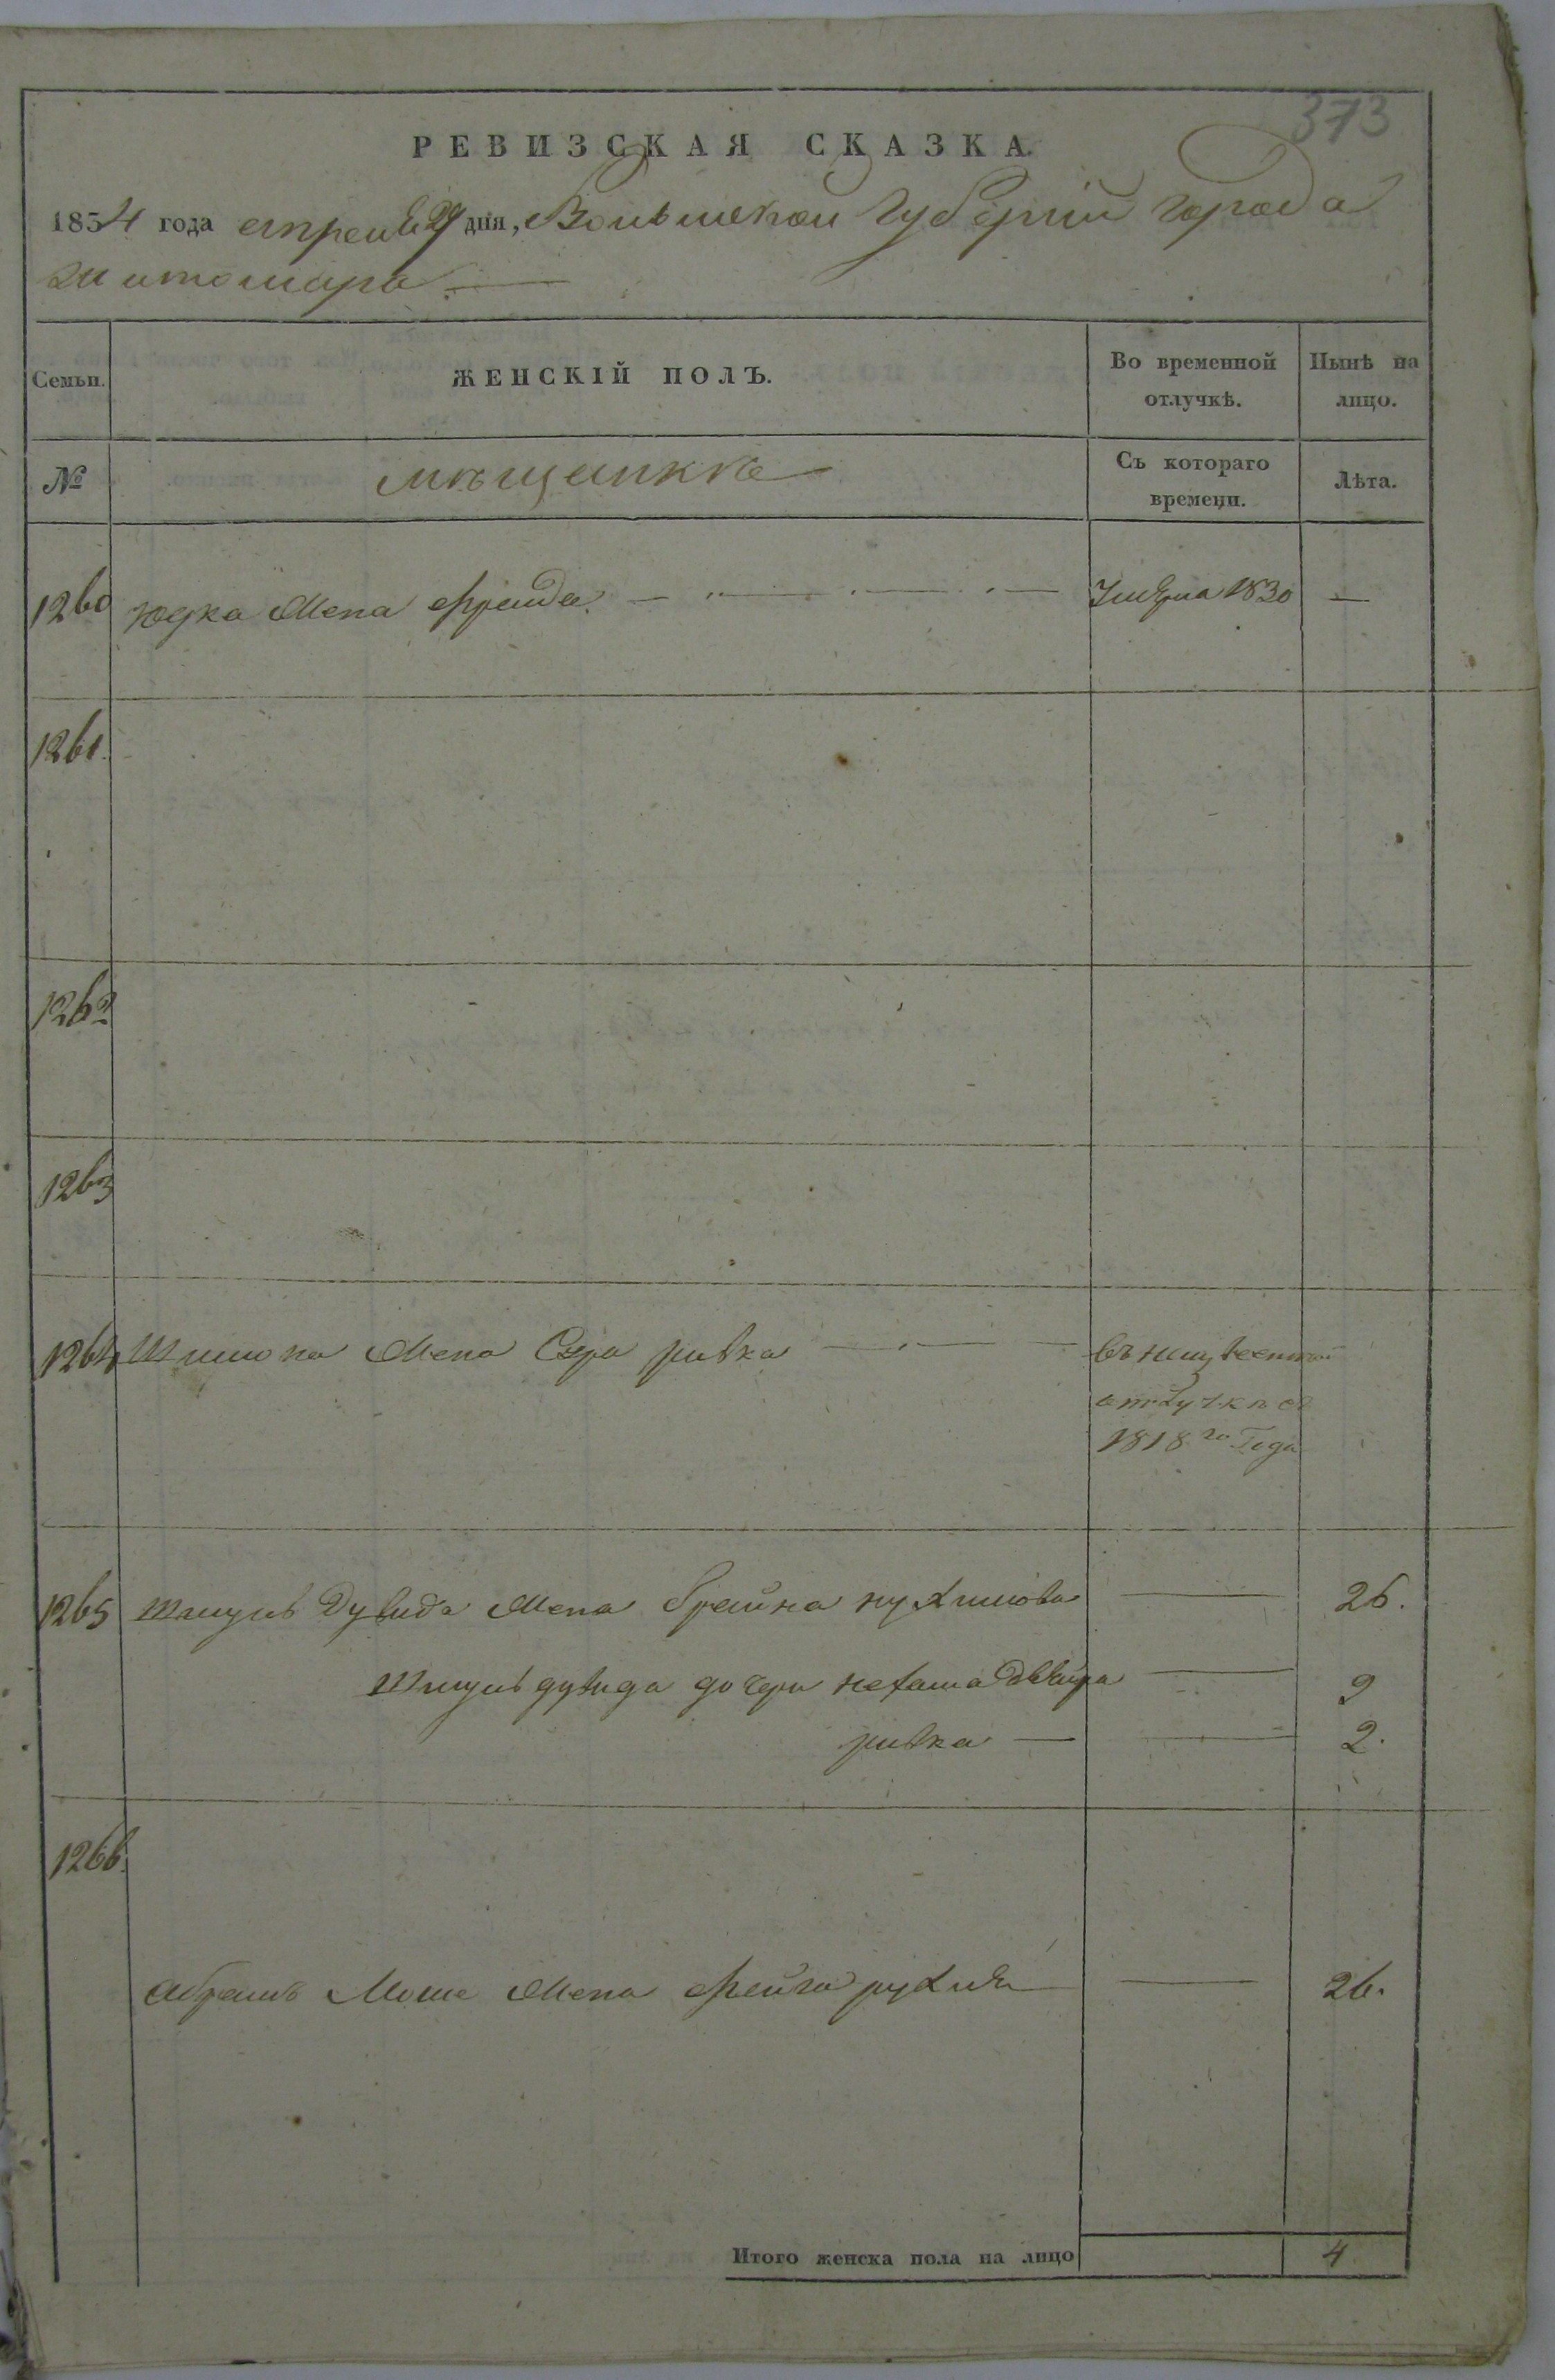 373
РЕВИЗСКАЯ СКАЗКА.
1834 года апреля 29 дня, Волынской Губернии города
Житомира
Семьи. ЖЕНСКІЙ ПОЛЪ. Во временной отлучкѣ. Нынѣ на лицо.
№ мѣщанкѣ Съ котораго времени. Лѣта.
1260 юдка Жена фрейда — Умерла 1830 —
1261.
1262
1263
1264 Жена Сура ривка — въ неизвестной
отлучкѣ съ
1818го Года
1265 Шмуль Дувида Жена брайна нухимова — 26.
Шмуль дувида дочери нехама Двейра — 9
ривка — — 2.
1266.
абрамъ Моше Жена фейга рухля — 26.
Итого женска пола на лицо 4